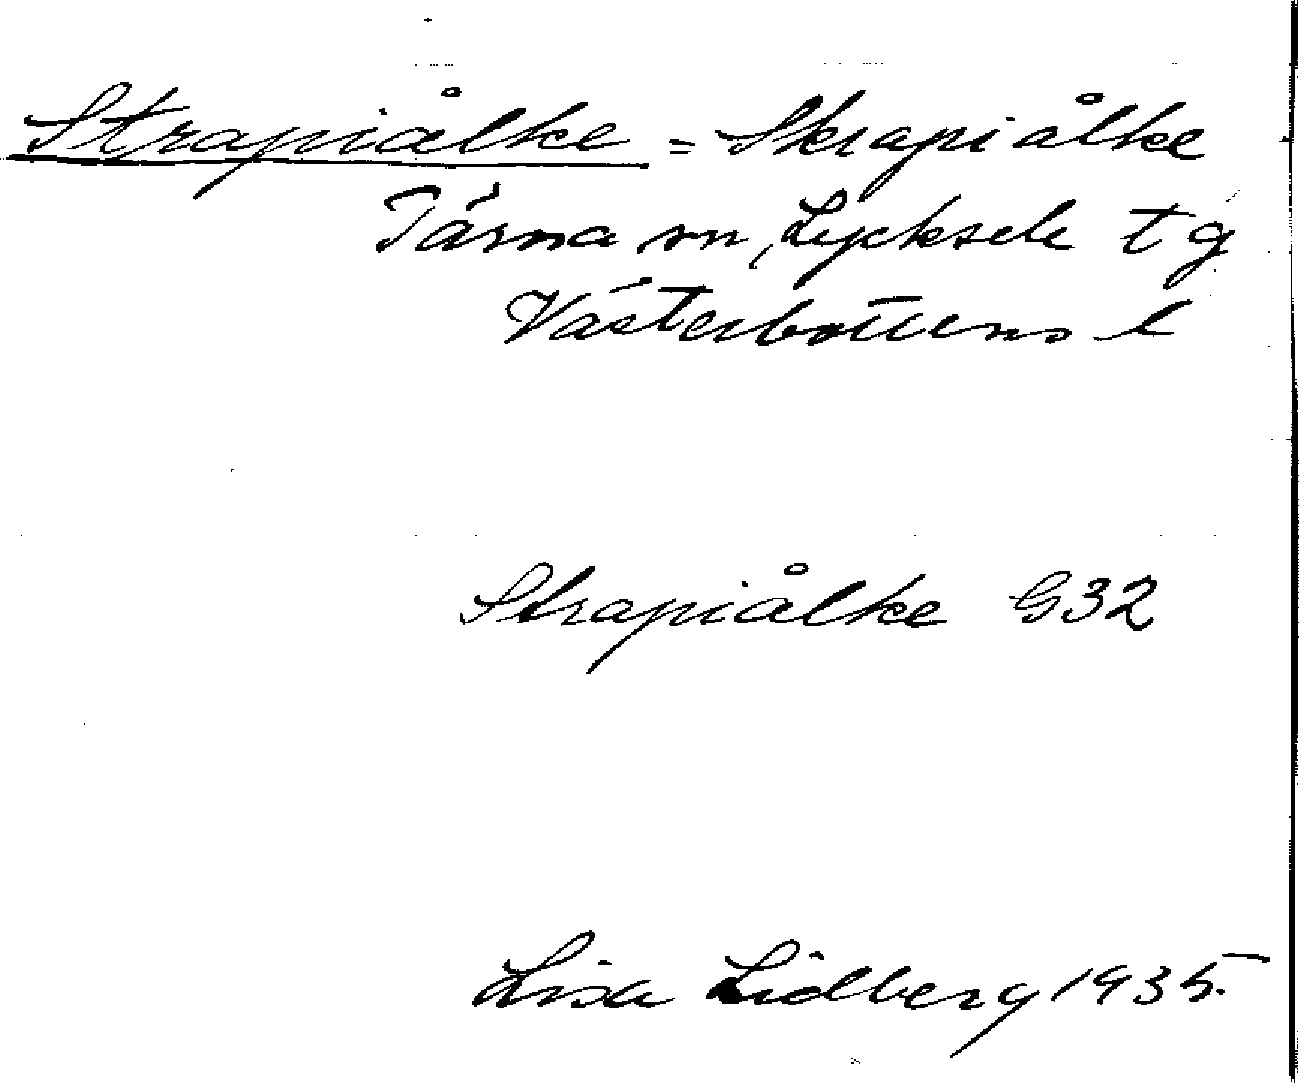 Strapiålke = Skrapiålke
Tärna sn, Lycksele tg
Västerbottens l
Strapiålke G32
Lisa Lidberg 1935.